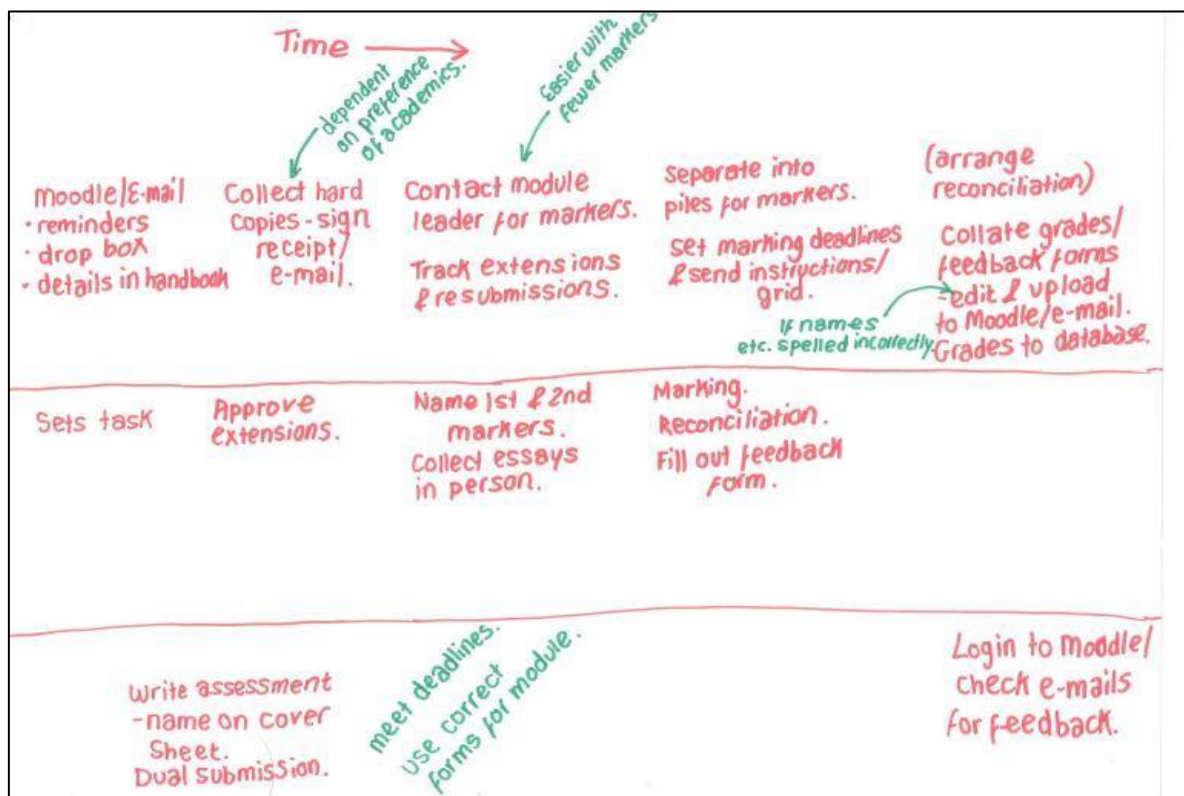 Time
dependent
on preference
of academics.
Easier with
fewer markers
Moodle/E-mail
· reminders
· drop box
· details in handbook
Collect hard
copies - sign
receipt/
e-mail.
Contact module
leader for markers.
Track extensions
& resubmissions.
Separate into
piles for markers.
Set marking deadlines
& send instructions/
grid.
If names
etc. spelled incorrectly.
(arrange
reconciliation)
Collate grades/
feedback forms
- edit & upload
to Moodle/e-mail.
Grades to database.
Sets task
Approve
extensions.
Name 1st & 2nd
markers.
Collect essays
in person.
Marking.
Reconciliation.
Fill out feedback
form.
Write assessment
- name on cover
Sheet.
Dual submission.
meet deadlines.
use correct
forms for module.
Login to Moodle/
check e-mails
for feedback.